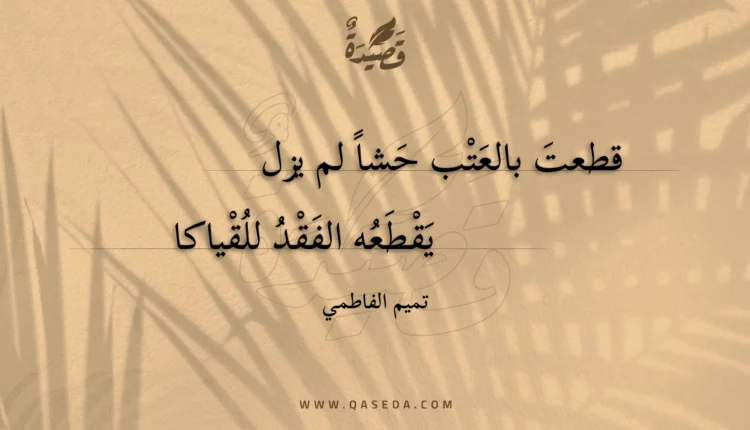 قَصِيْدَةٌ
قطعتَ بالعَتْب حَشاً لم يزل
يَقْطَعُه الفَقْدُ للُقْياكا
تميم الفاطمي
WWW.QASEDA.COM